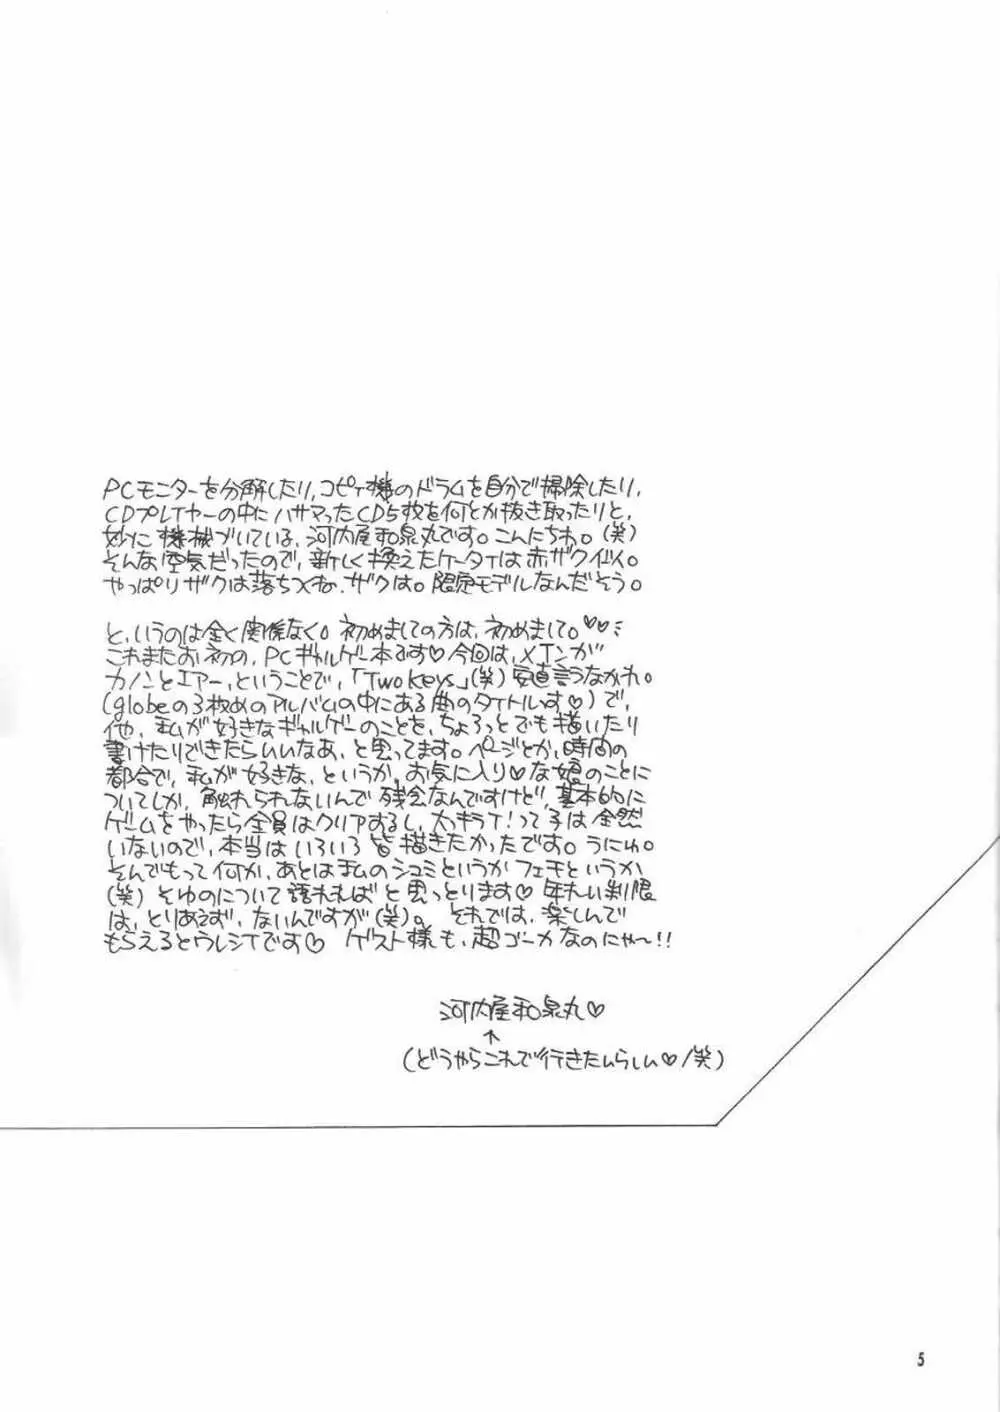 PCモニターを分解したり、コピィ機のドラムを自分で掃除したり、
CDプレイヤーの中にハサマったCD5枚を何とか抜き取ったりと、
妙に機械づいている、河内屋和泉丸です。こんにちわ。(笑)
そんな空気だったので、新しく換えたケータイは赤ザク仕様。
やっぱりザクは落ちつくね、ザクは。限定モデルなんだそう。
と、いうのは全く関係なく。初めましての方は、初めまして。♡♡
これまたお初の、PCギャルゲー本です♡今回は、メインが
カノンとエアー、ということで、「Two Keys」(笑)安直言うなかれ。
(globeの3枚めのアルバムの中にある曲のタイトルっす♡)で、
他、私が好きなギャルゲーのことを、ちょろっとでも描いたり
書けたりできたらいいなあ、と思ってます。ページとか、時間の
都合で、私が好きな、というか、お気に入り♡な娘のことに
ついてしか、触れられないんで残念なんですけど、基本的に
ゲームをやったら全員はクリアするし、大ッキライ!って子は全然
いないので、本当はいろいろ皆描きたかったです。うにゅ。
そんでもって何か、あとは私のシュミというかフェチというか
(笑)そゆのについて語れればと思っとります♡年れい制限
は、とりあえず、ないんですが(笑)。それでは、楽しんで
もらえるとウレシイです♡ ゲスト様も、超ゴーカなのにゃ〜!!
河内屋和泉丸♡
↑
(どうやらこれで行きたいらしい♡/笑)
5